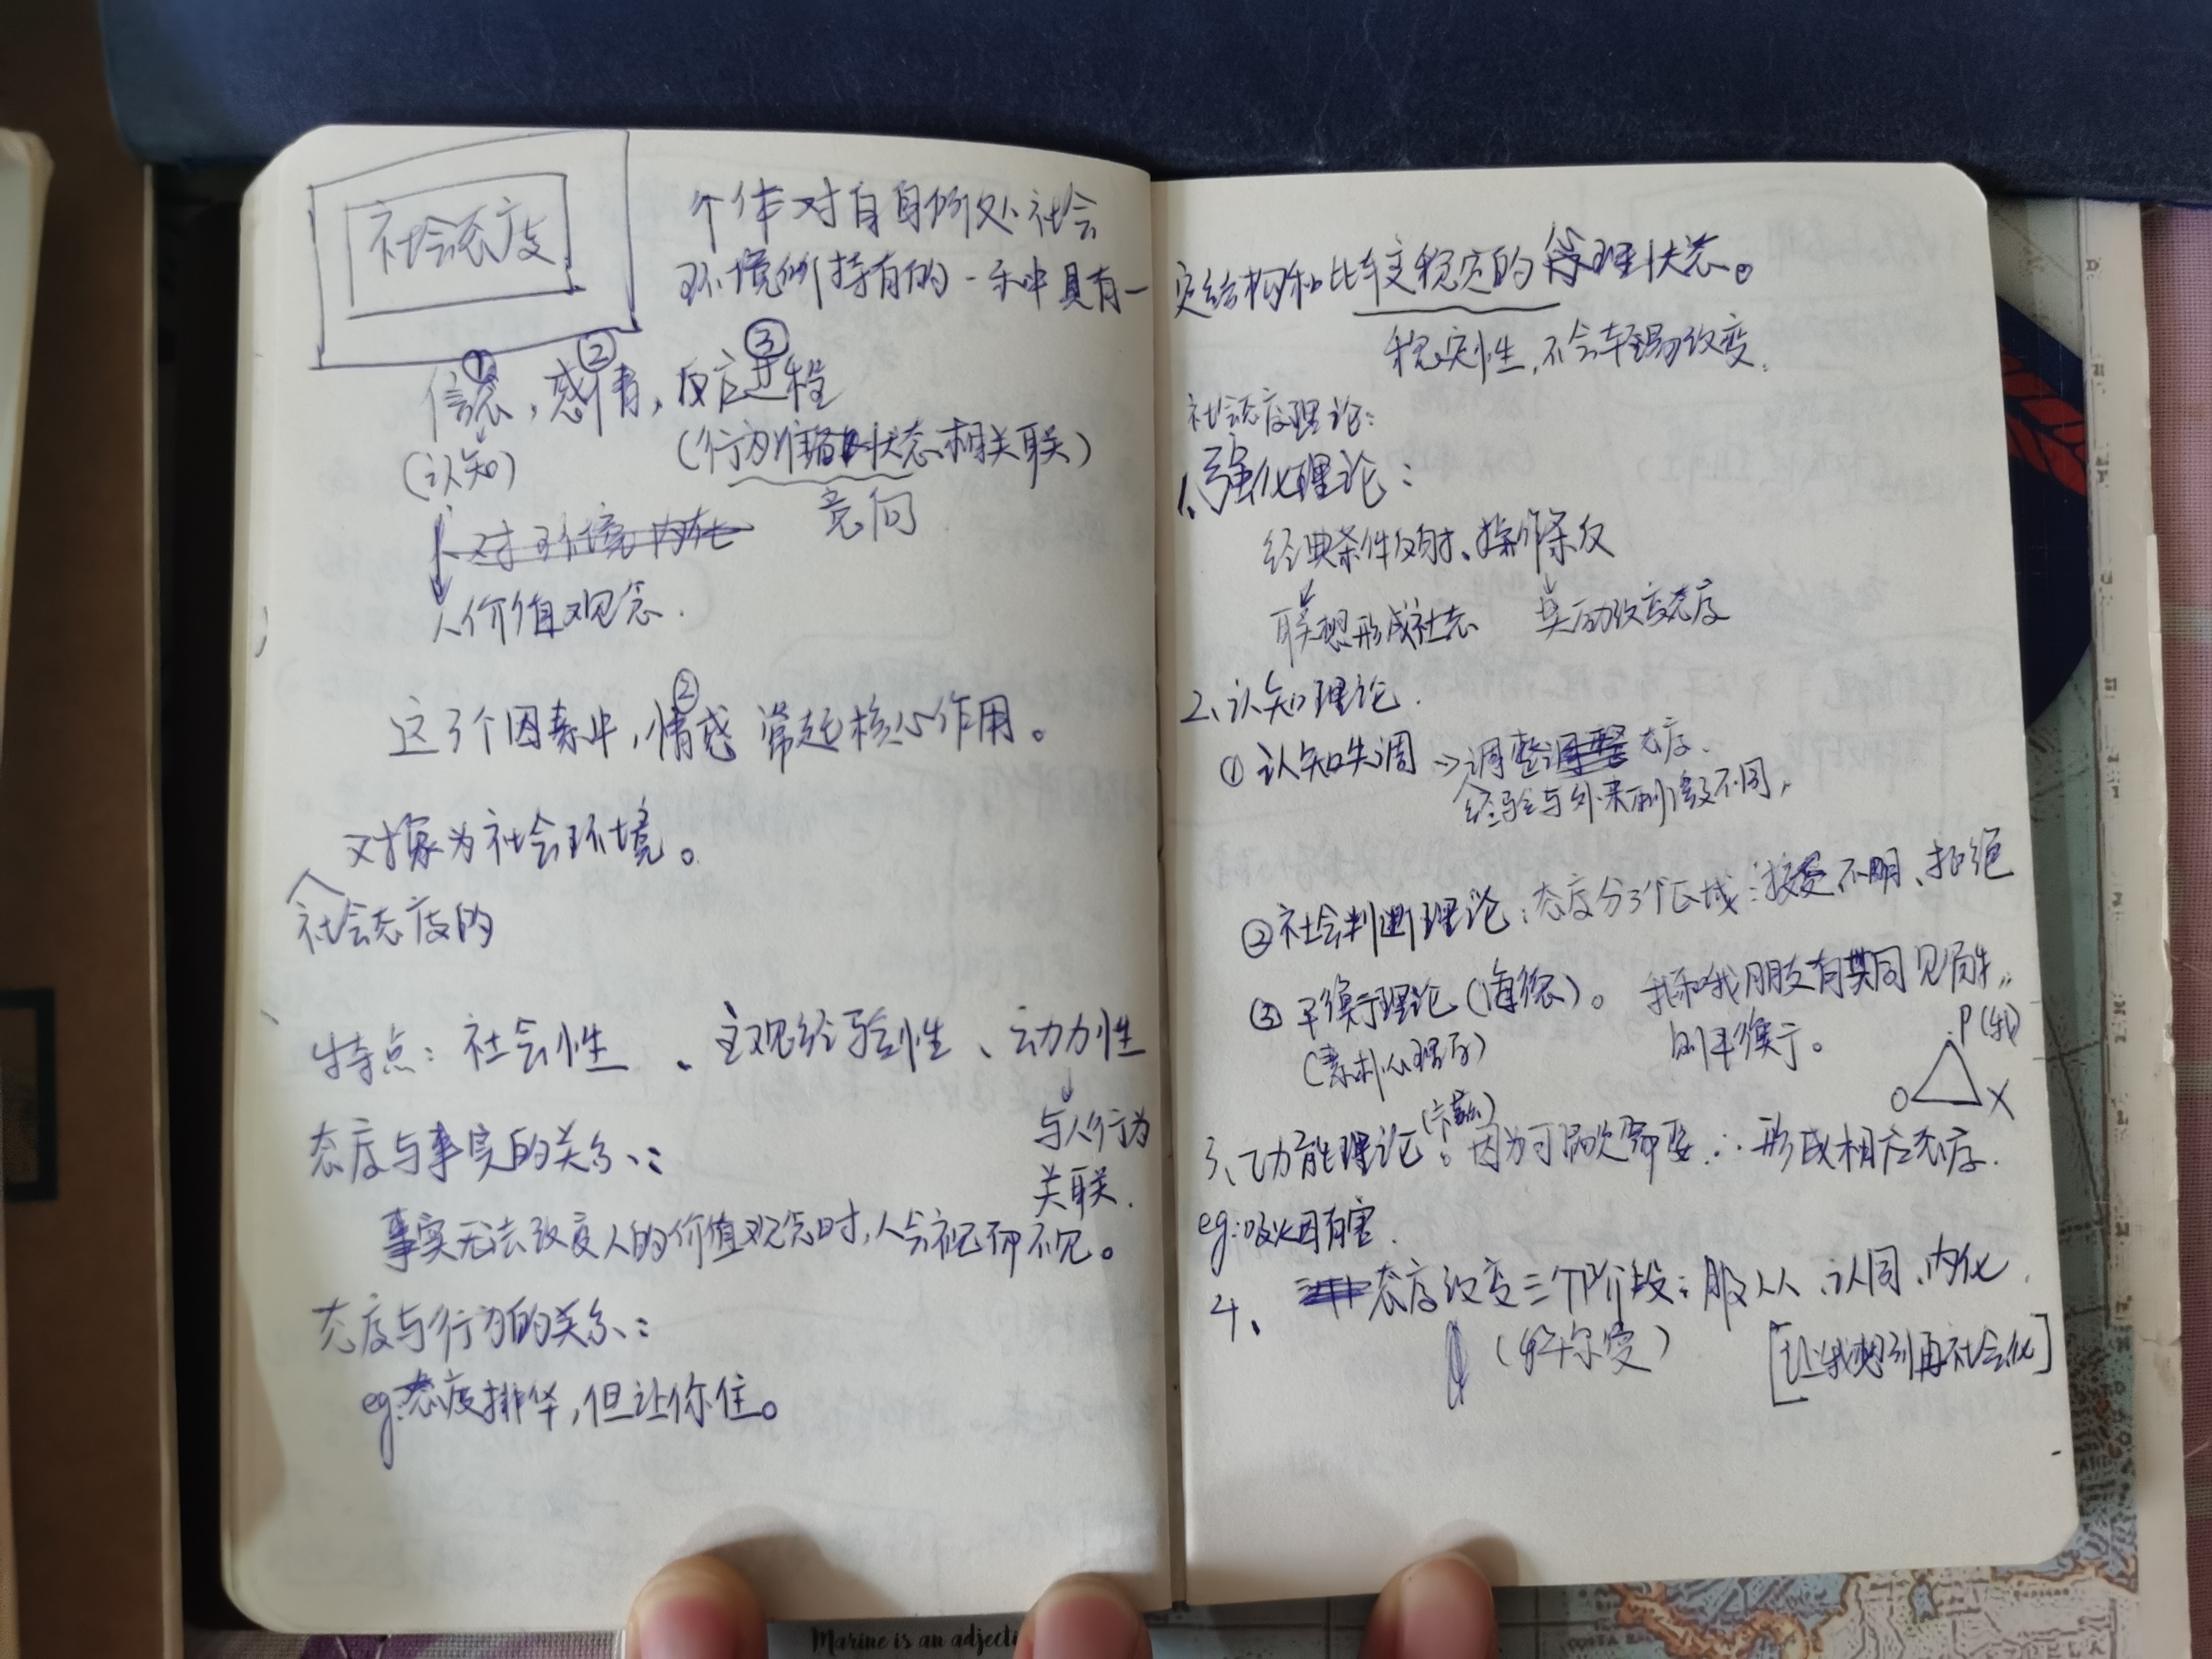 社会态度
个体对自身所处社会
环境所持有的一种具有一
①信念,②感情,③反应过程
(认知)
(行为准备状态相关联)
意向
对环境内在
人价值观念.
这3个因素中,②情感 常起核心作用。
对象为社会环境。
社会态度的
特点:社会性、主观经验性、动力性
与人行为
关联.
态度与事实的关系:
事实无法改变人的价值观念时,人会视而不见。
态度与行为的关系:
eg:态度排华,但让你住。
定结构和比较稳定的心理状态。
稳定性,不会轻易改变.
社会态度理论:
1、强化理论:
经典条件反射、操作条反
联想形成社态
奖励改变态度
2、认知理论.
①认知失调→调整态度.
经验与外来刺激不同,
②社会判断理论:态度分3个区域:接受、不明、拒绝
③平衡理论(海德)。我和我朋友有共同见解,
则平衡。
(素朴心理学)
P(我)
O
X
3、功能理论。因为可满足需要∴形成相应态度.
eg:吸烟有害.
4、态度改变三个阶段:服从、认同、内化.
(尔曼)
[让我想到再社会化]
Marine is an adjecti